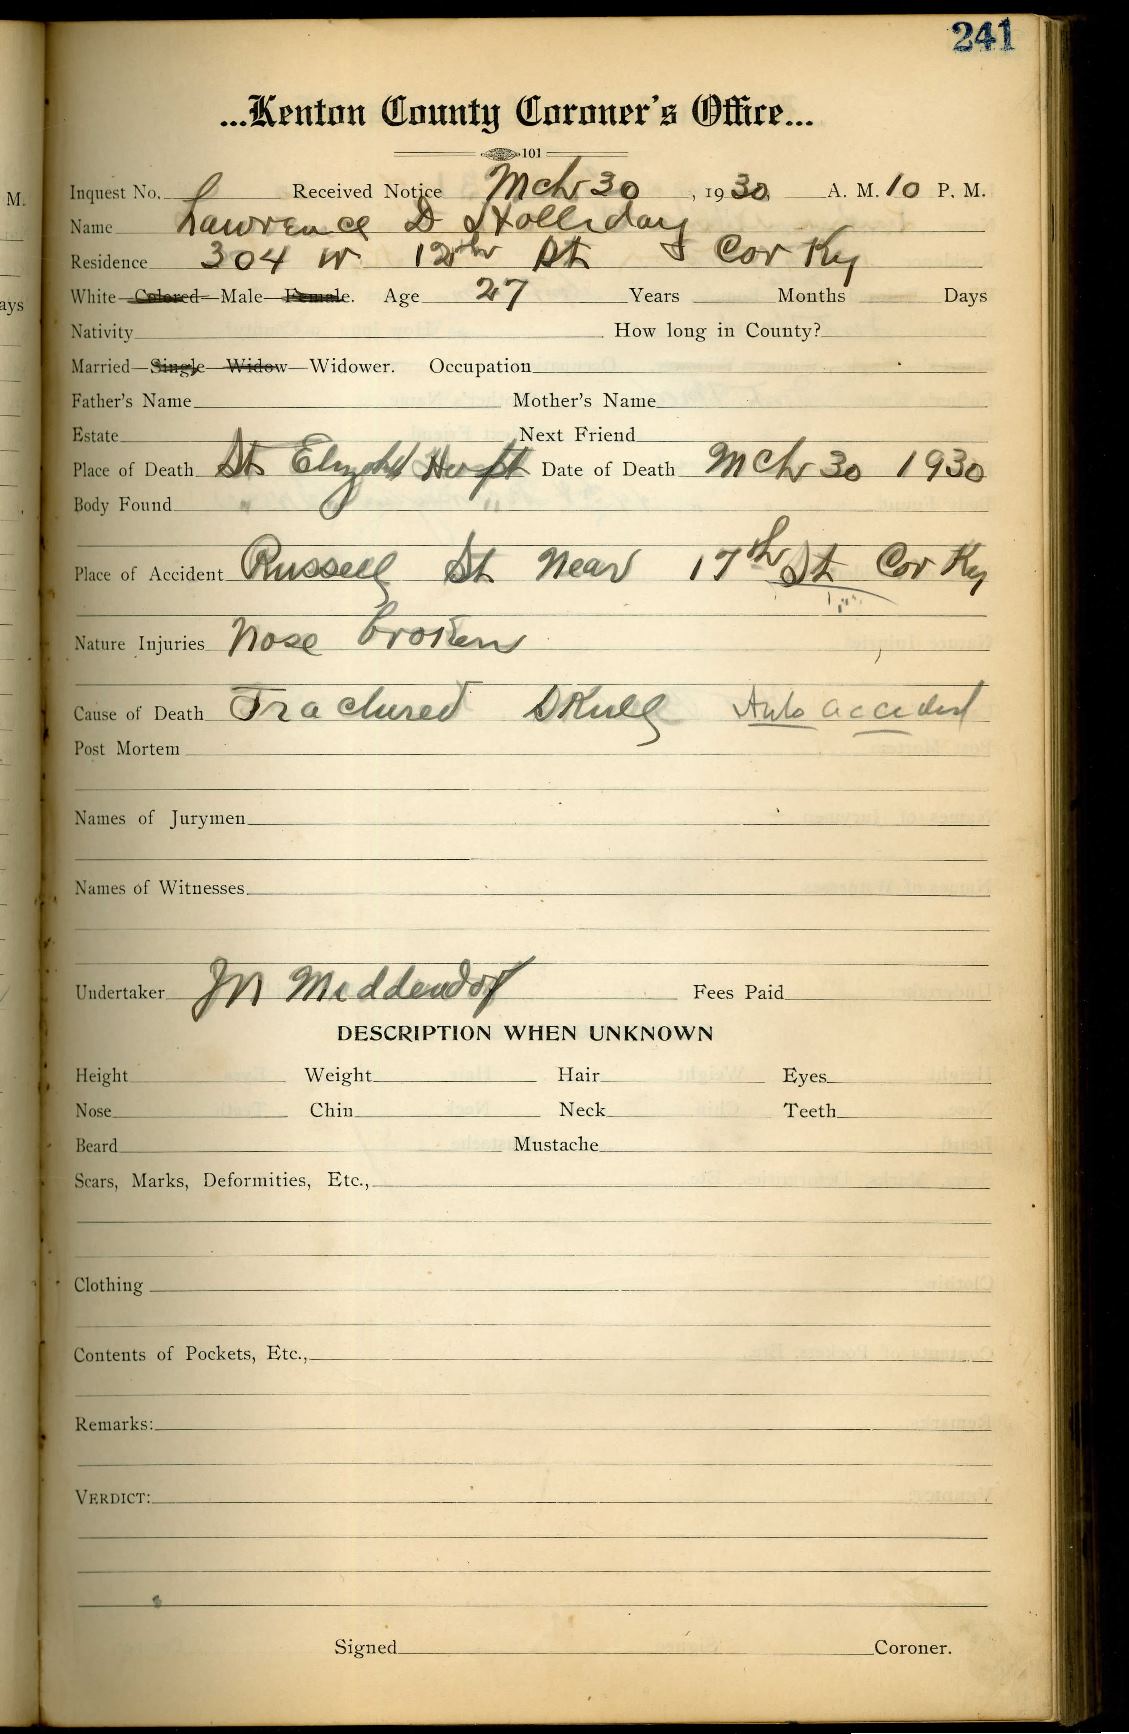 241
...Kenton County Coroner's Office...
101
Inquest No. Received Notice Mch 30, 1930, A. M. 10 P. M.
Name Lawrence D Holliday
Residence 304 W 12th St Cov Ky
White—Colored—Male—Female. Age 27 Years Months Days
Nativity How long in County?
Married—Single—Widow—Widower. Occupation
Father's Name Mother's Name
Estate Next Friend
Place of Death St Elizabt Hospt Date of Death Mch 30 1930
Body Found
Place of Accident Russell St Near 17th St Cov Ky
Nature Injuries Nose broken
Cause of Death Fractured Skull Auto accident
Post Mortem
Names of Jurymen
Names of Witnesses
Undertaker JN Middendorf Fees Paid
DESCRIPTION WHEN UNKNOWN
Height Weight Hair Eyes
Nose Chin Neck Teeth
Beard Mustache
Scars, Marks, Deformities, Etc.,
Clothing
Contents of Pockets, Etc.,
Remarks:
VERDICT:
Signed Coroner.
M.
ays